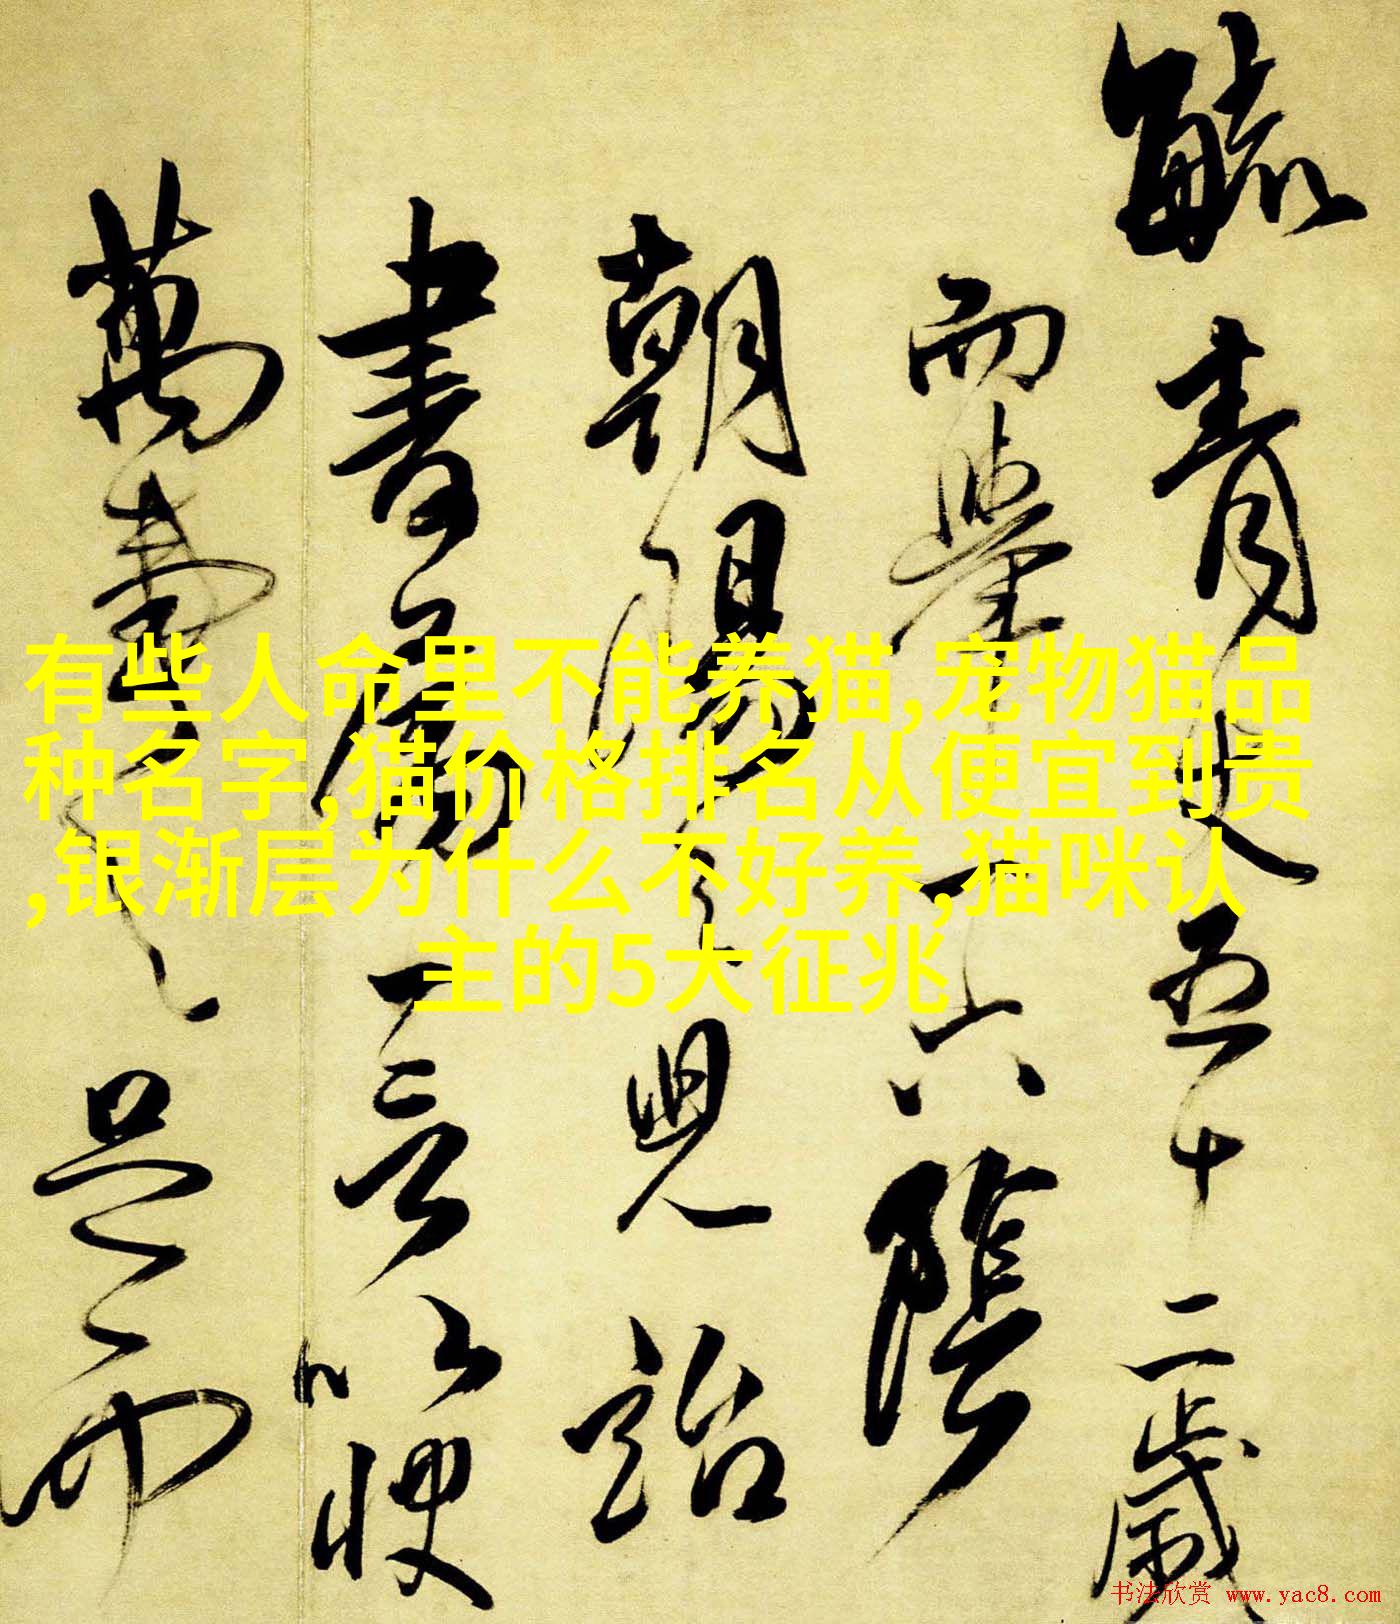 毓青史五十二歲
而學
六陰
朝陽
見詒
書屬
一言以
萬壽
是而
有些人命里不能养猫,宠物猫品
种名字,猫价格排名从便宜到贵
,银渐层为什么不好养,猫咪认
主的5大征兆
书法欣赏 www.yac8.com